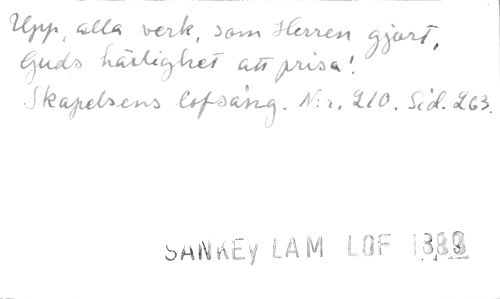 Upp, alla verk, som Herren gjort,
Guds härlighet att prisa!
Skapelsens lofsång. N:r. 210. Sid. 263.
SANKEY LAM LOF 1388